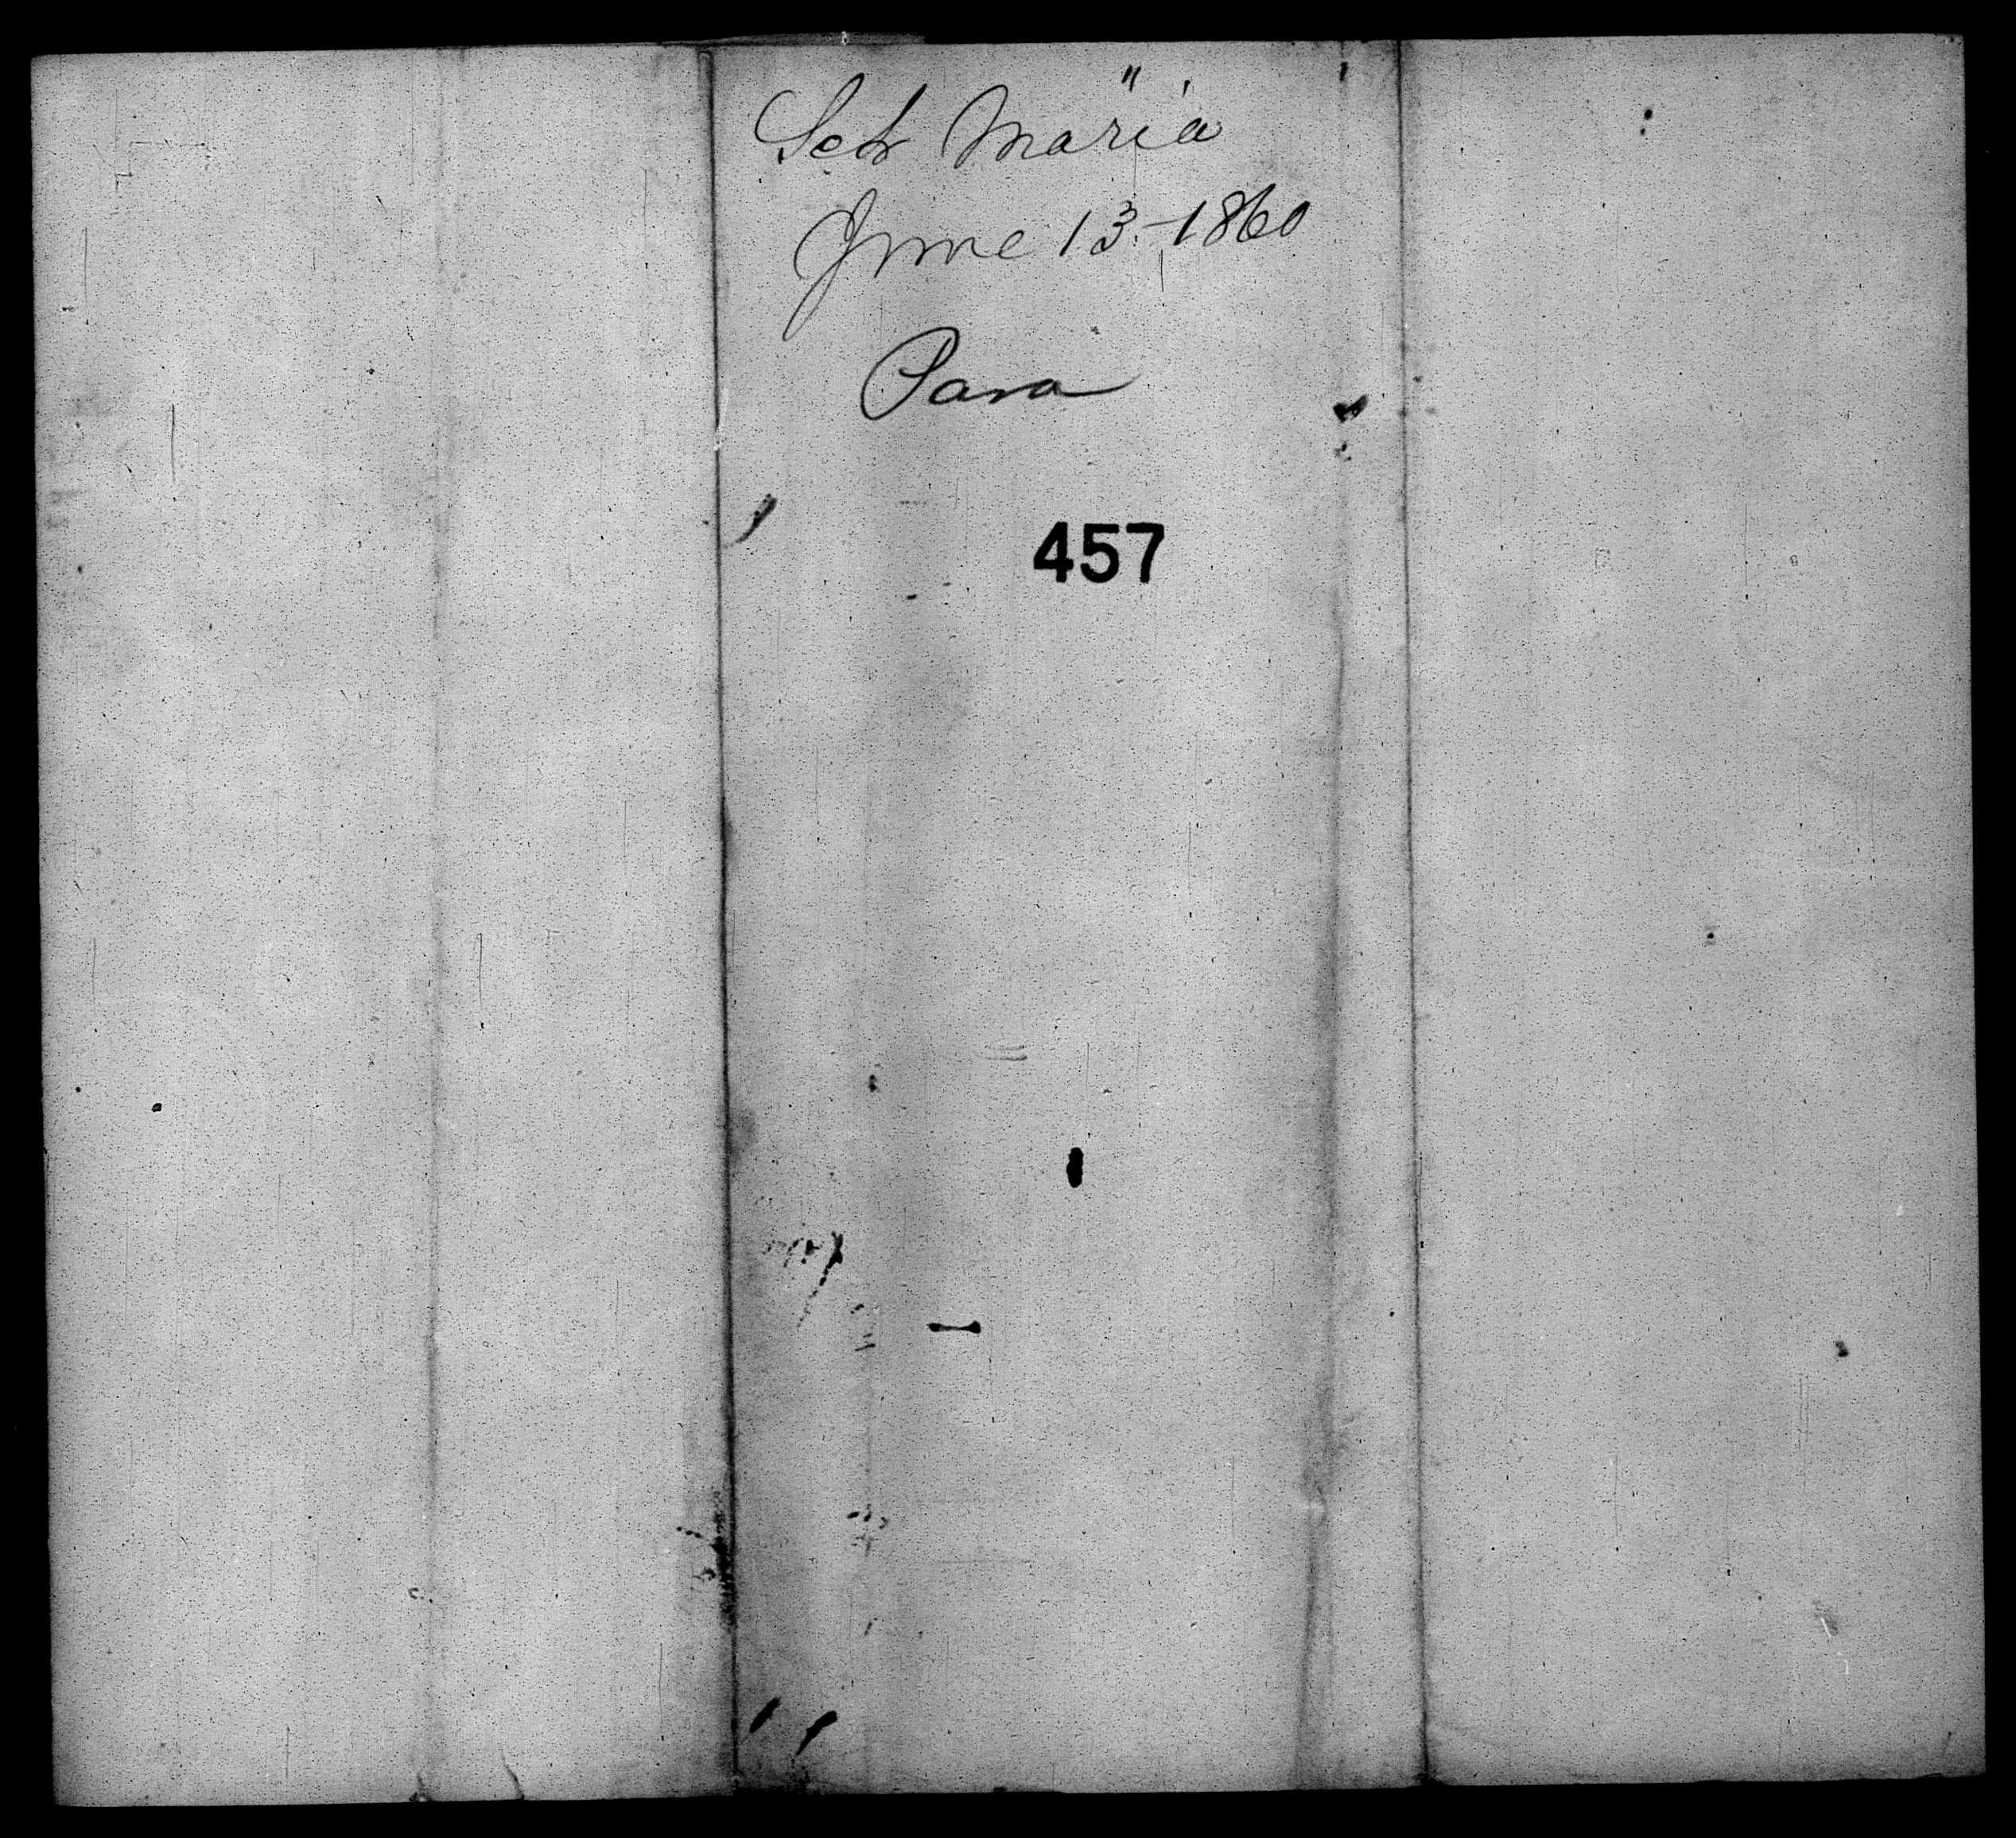 Sch Maria "
June 13-1860
Para
457